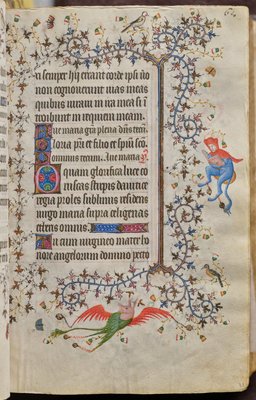 semper hij errant corde ipsi uo
non cognouerunt uias meas
quibus iuraui in ira mea si i
troibunt in requiem meam
Aue maria gra plena dns tecu
Gloria pri et filio et spui sco
Dominus tecum. Aue maria
O quam glorifica luce co
ruscas stirpis dauitice
regia proles sublimis residens
uirgo maria supra celigenas
etheris omnis.
Tu cum uirgineo mater ho
nore angelorum domino pecto